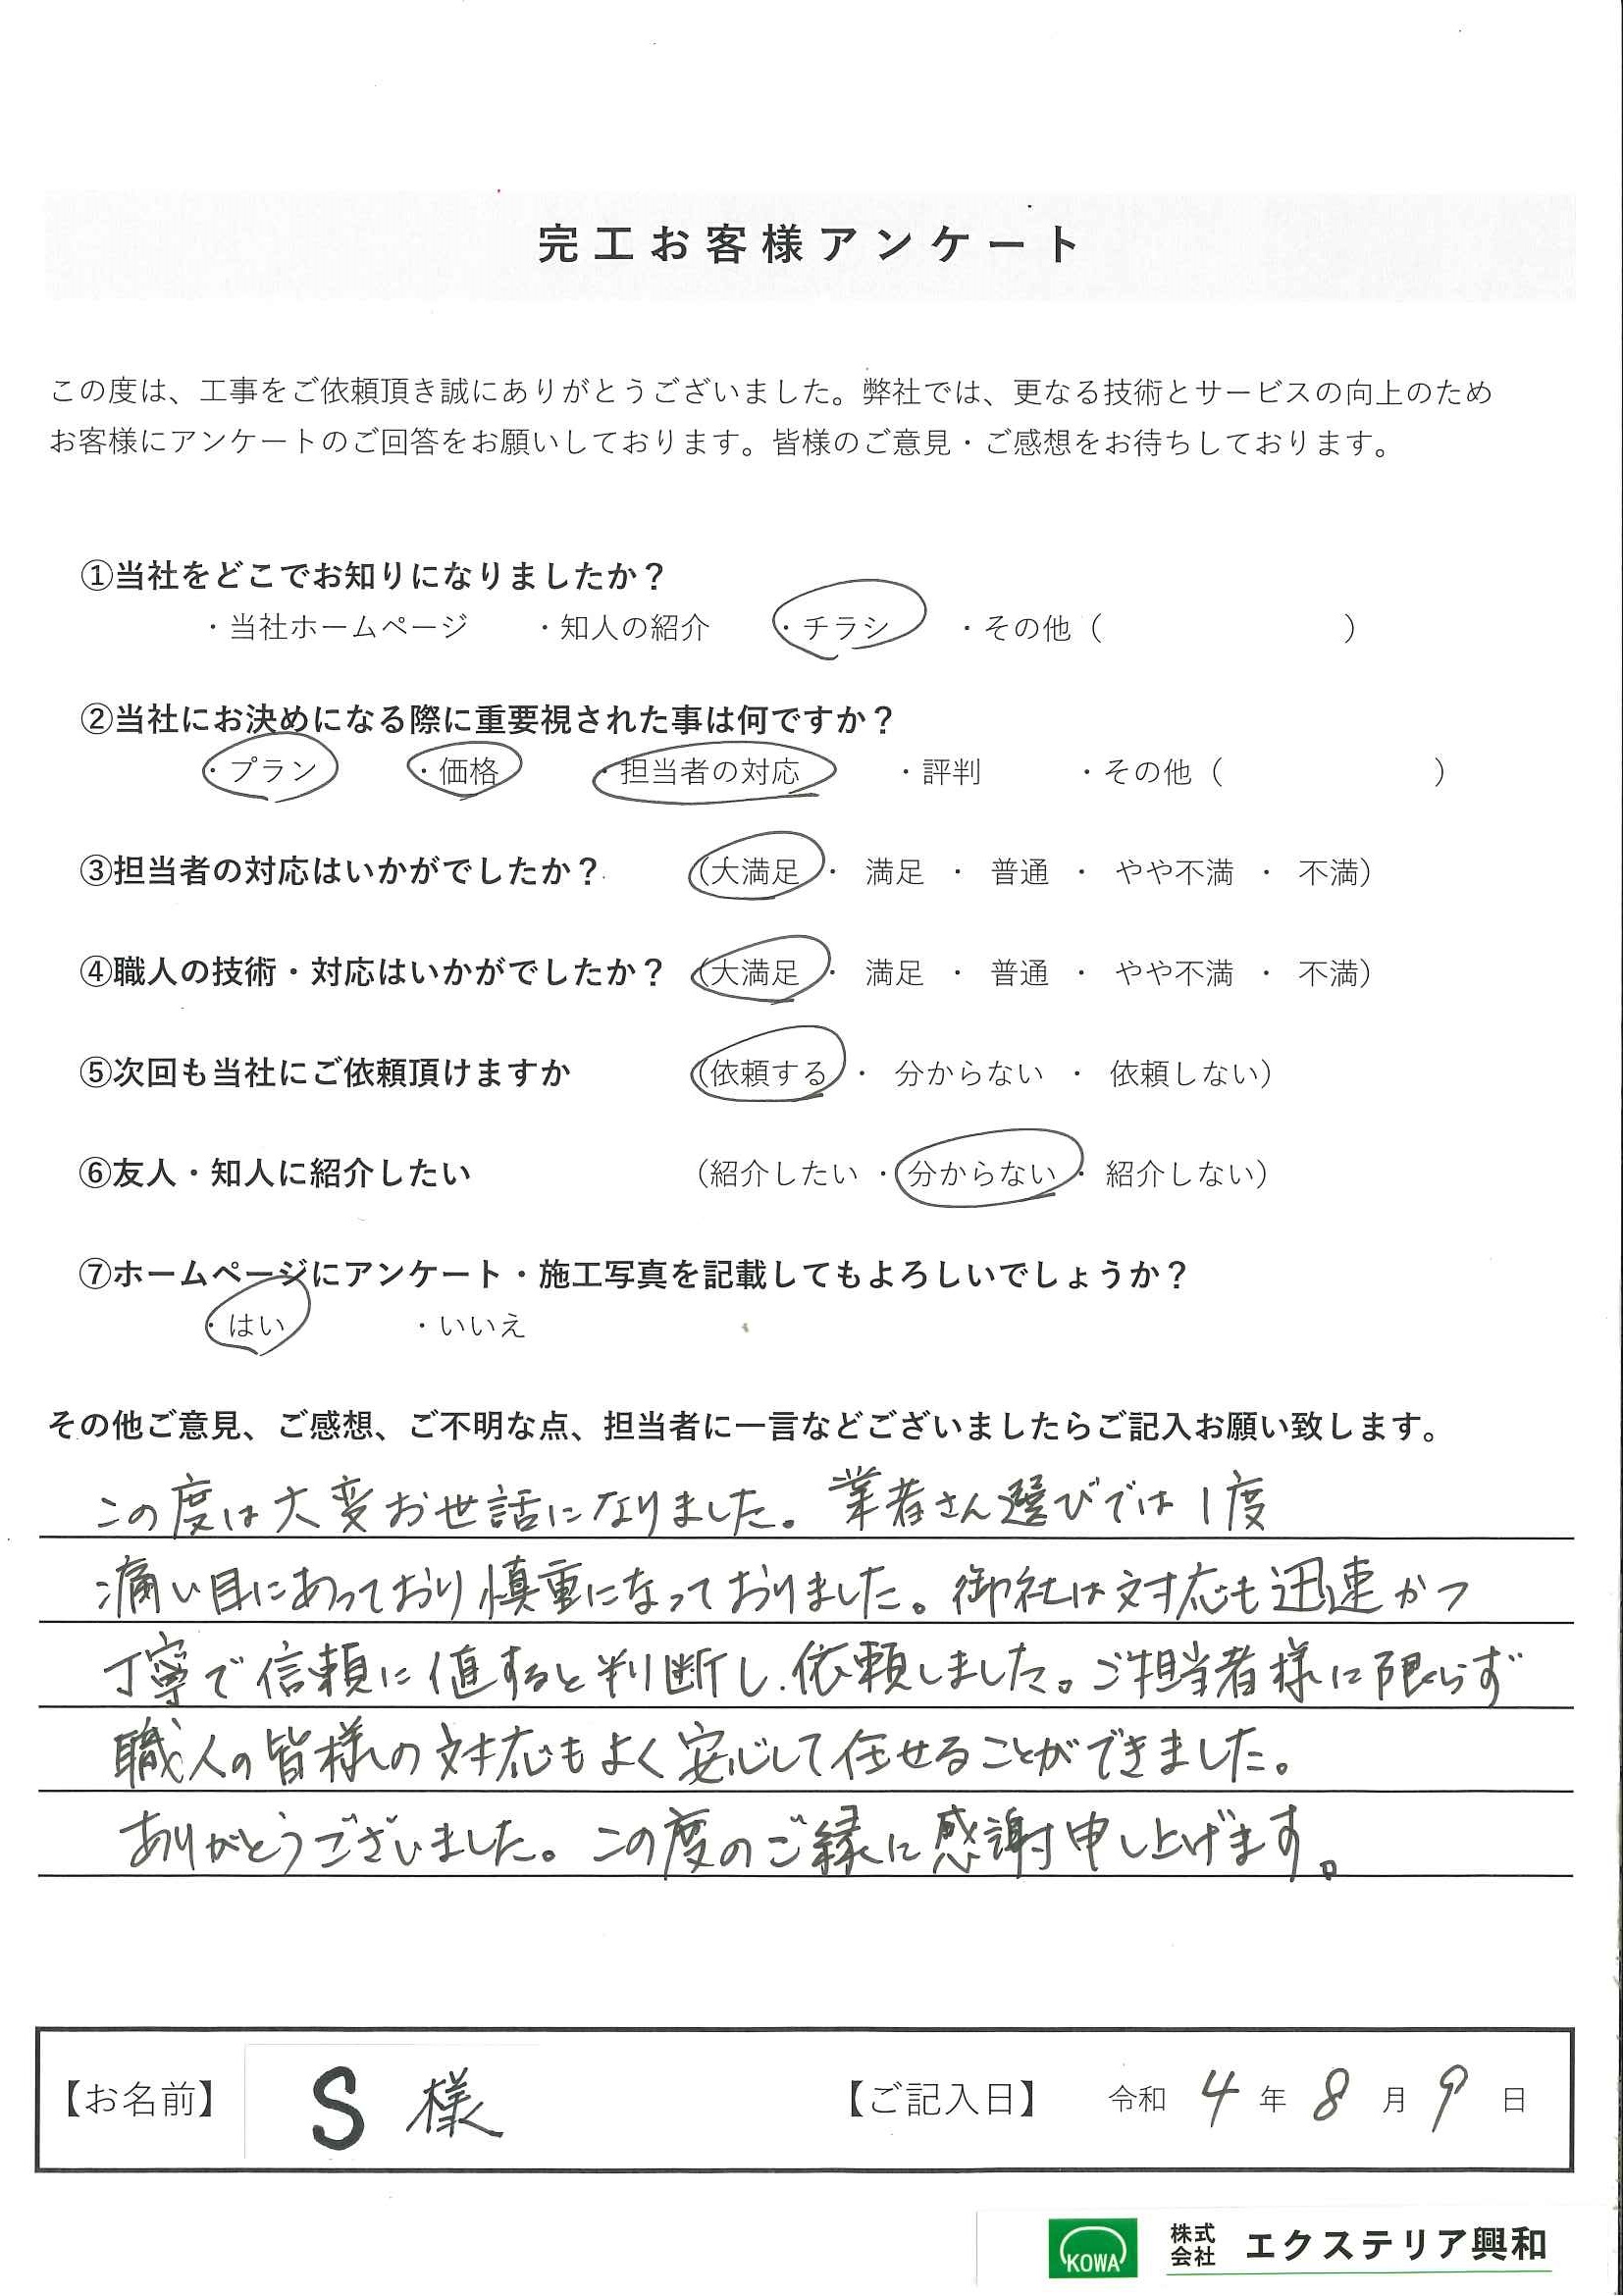 完工お客様アンケート
この度は、工事をご依頼頂き誠にありがとうございました。弊社では、更なる技術とサービスの向上のため
お客様にアンケートのご回答をお願いしております。皆様のご意見・ご感想をお待ちしております。
①当社をどこでお知りになりましたか？
・当社ホームページ ・知人の紹介 ・チラシ ・その他（ ）
②当社にお決めになる際に重要視された事は何ですか？
・プラン ・価格 ・担当者の対応 ・評判 ・その他（ ）
③担当者の対応はいかがでしたか？ （大満足 ・ 満足 ・ 普通 ・ やや不満 ・ 不満）
④職人の技術・対応はいかがでしたか？ （大満足 ・ 満足 ・ 普通 ・ やや不満 ・ 不満）
⑤次回も当社にご依頼頂けますか （依頼する ・ 分からない ・ 依頼しない）
⑥友人・知人に紹介したい （紹介したい ・ 分からない ・ 紹介しない）
⑦ホームページにアンケート・施工写真を記載してもよろしいでしょうか？
・はい ・いいえ
その他ご意見、ご感想、ご不明な点、担当者に一言などございましたらご記入お願い致します。
この度は大変お世話になりました。業者さん選びでは1度
痛い目にあっており慎重になっておりました。御社は対応も迅速かつ
丁寧で信頼に値すると判断し、依頼しました。ご担当者様に限らず
職人の皆様の対応もよく安心して任せることができました。
ありがとうございました。この度のご縁に感謝申し上げます。
【お名前】 S 様 【ご記入日】 令和 4 年 8 月 9 日
KOWA 株式会社 エクステリア興和